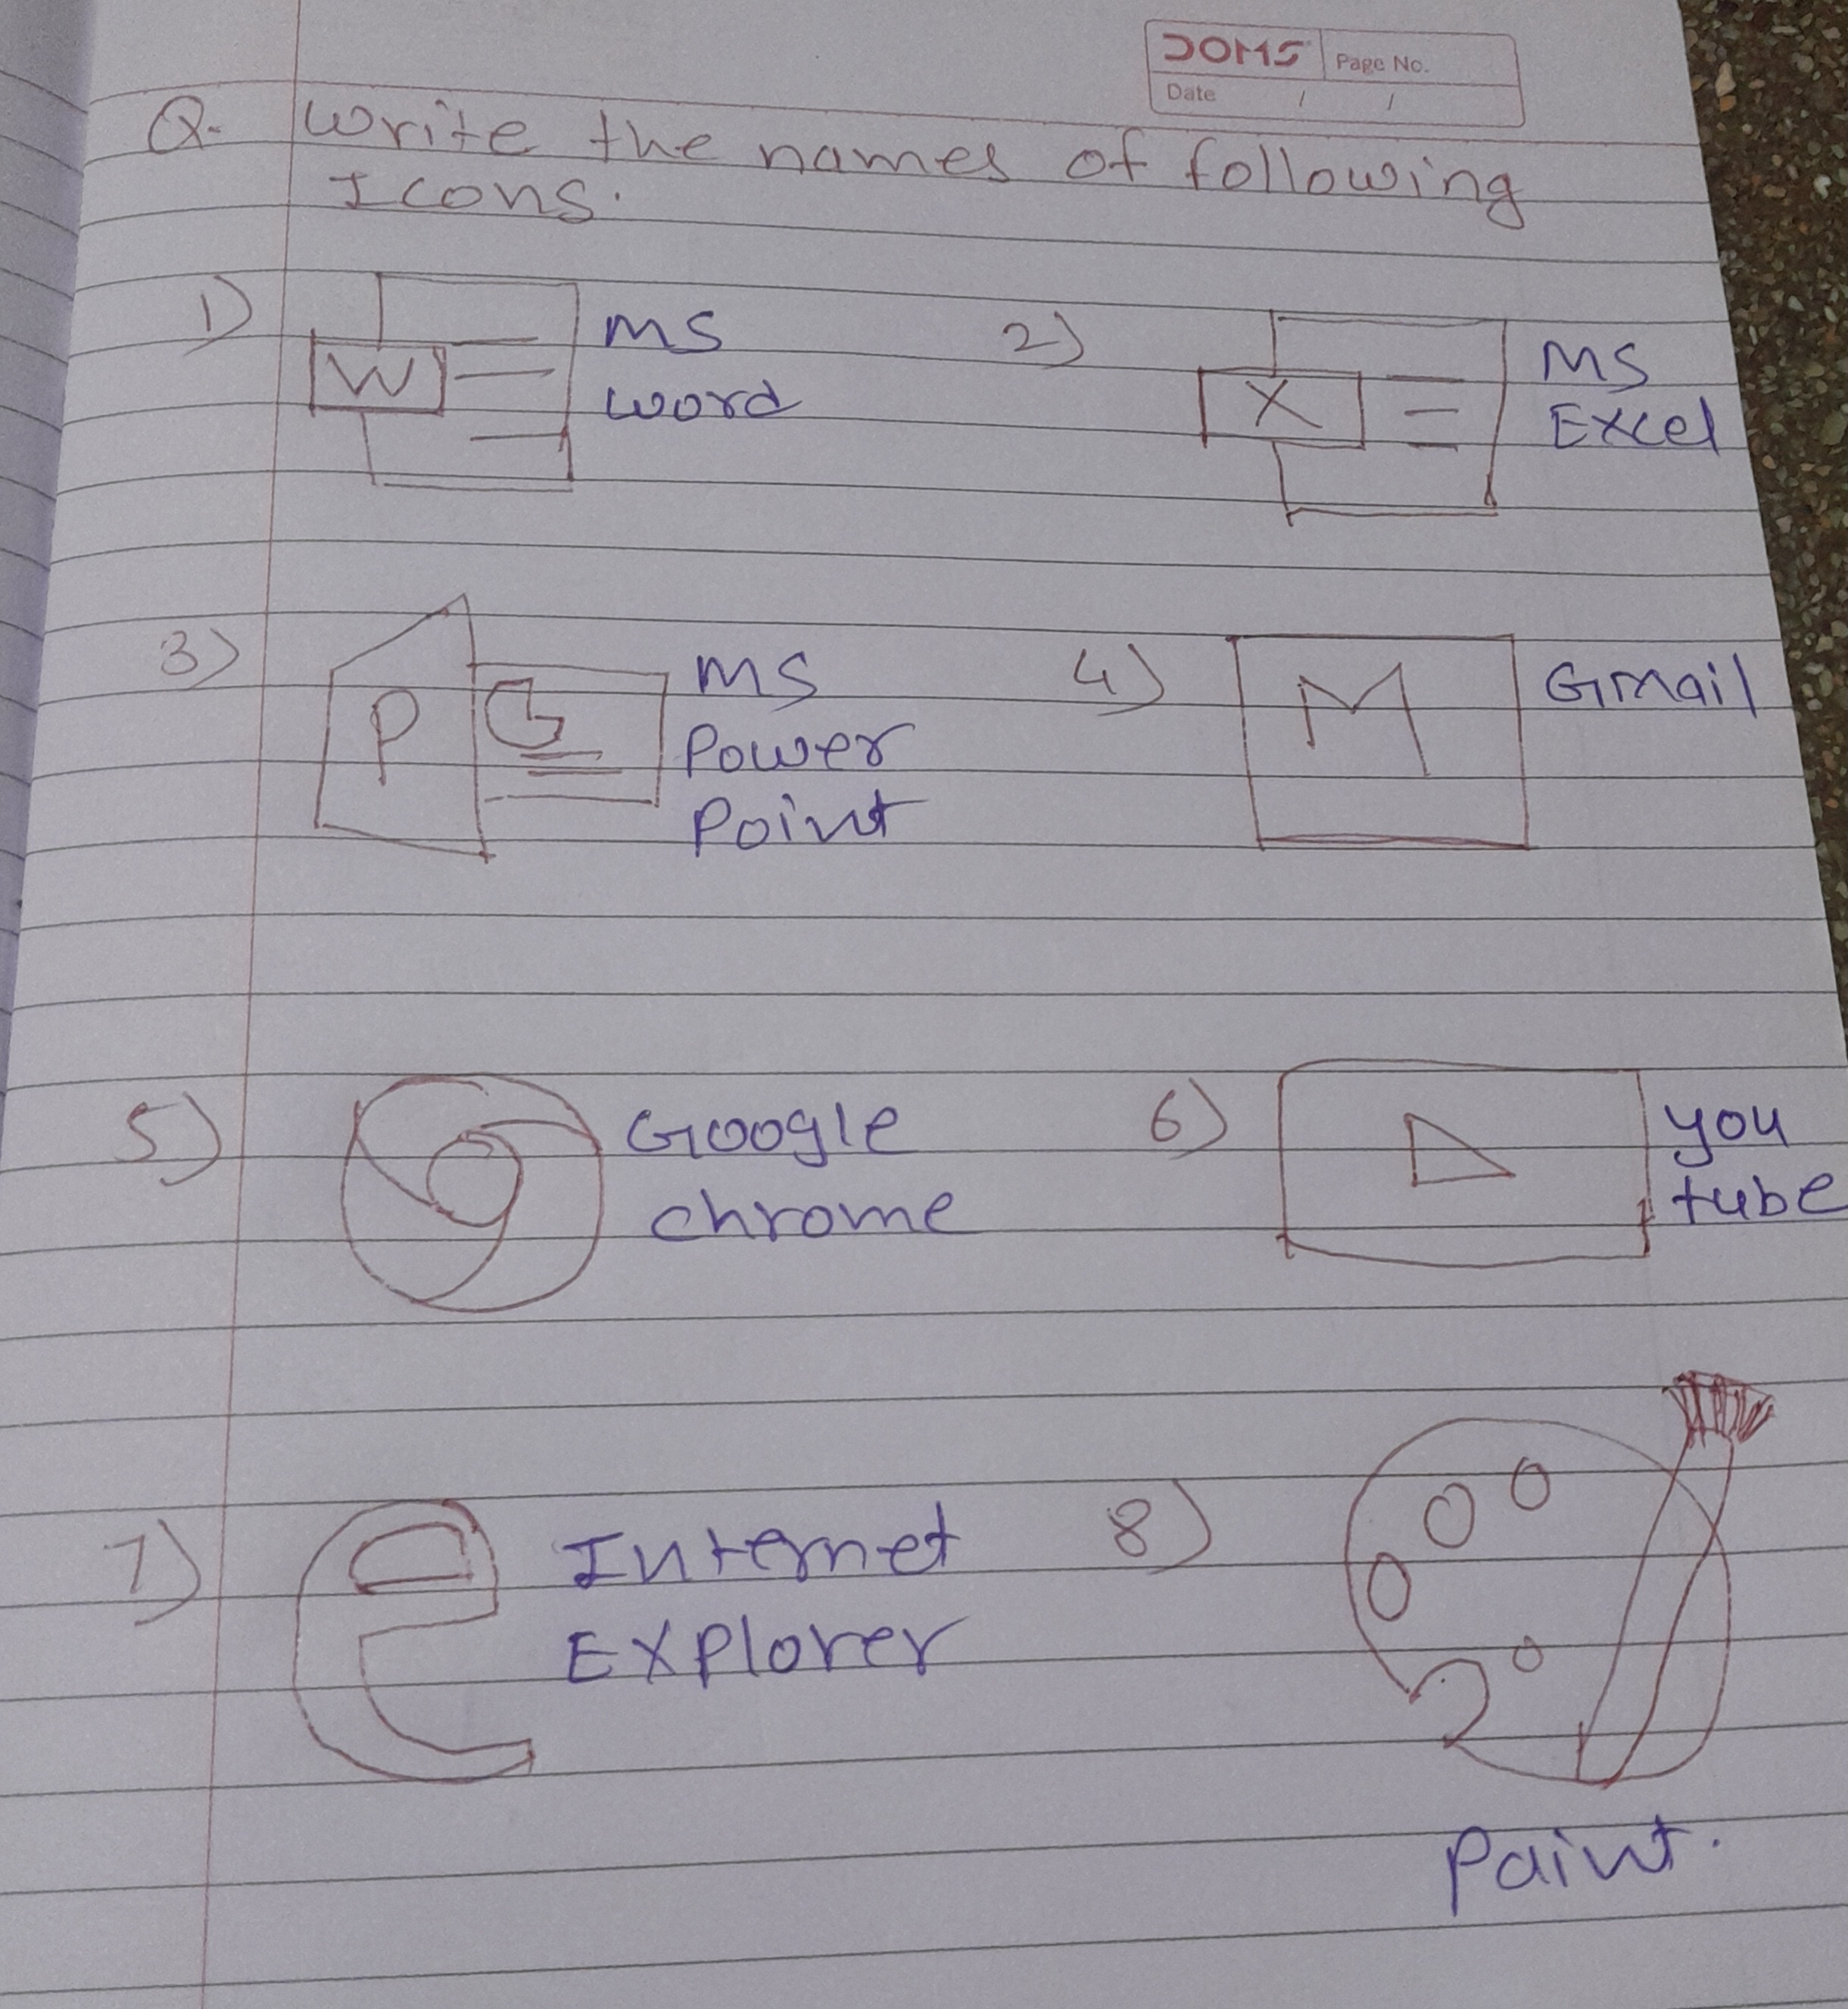 DOMS Page No.
Date / /
Q. Write the names of following
Icons.
1) W MS
word
2) X MS
Excel
3) P MS
Power
Point
4) M Gmail
5) Google
chrome
6) you
tube
7) Internet
Explorer
8)
Paint.